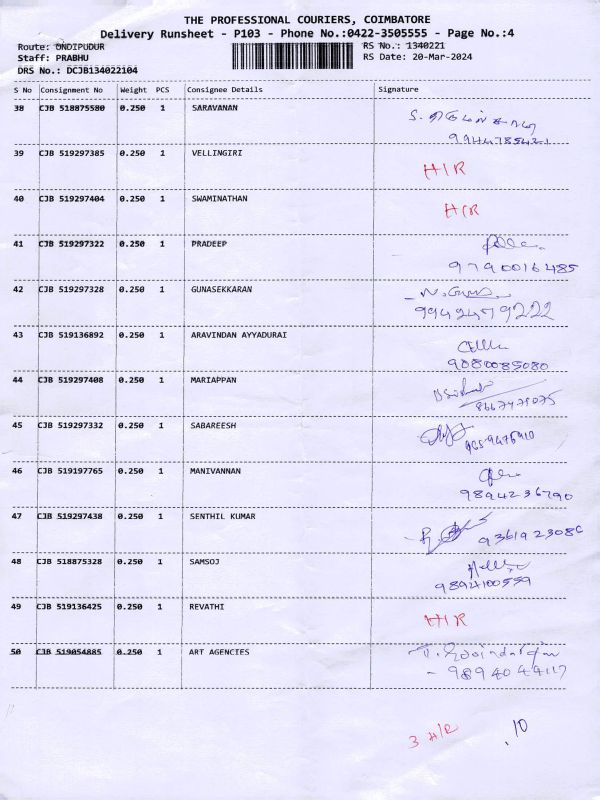 THE PROFESSIONAL COURIERS, COIMBATORE
Delivery Runsheet - P103 - Phone No.:0422-3505555 - Page No.:4
Route: ONDIPUDUR RS No.: 1340221
Staff: PRABHU RS Date: 20-Mar-2024
DRS No.: DCJB134022104
S No Consignment No Weight PCS Consignee Details Signature
38 CJB 518875580 0.250 1 SARAVANAN
9944785421
39 CJB 519297385 0.250 1 VELLINGIRI
H/R
40 CJB 519297404 0.250 1 SWAMINATHAN
H/R
41 CJB 519297322 0.250 1 PRADEEP
9790016485
42 CJB 519297328 0.250 1 GUNASEKKARAN
9942479222
43 CJB 519136892 0.250 1 ARAVINDAN AYYADURAI
9080085080
44 CJB 519297408 0.250 1 MARIAPPAN
45 CJB 519297332 0.250 1 SABAREESH
46 CJB 519197765 0.250 1 MANIVANNAN
9894236790
47 CJB 519297438 0.250 1 SENTHIL KUMAR
48 CJB 518875328 0.250 1 SAMSOJ
9894100559
49 CJB 519136425 0.250 1 REVATHI
H/R
50 CJB 519054885 0.250 1 ART AGENCIES
3 H/R 10